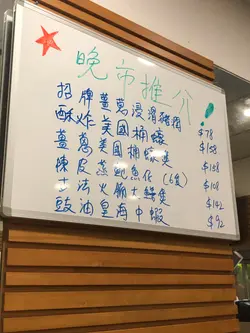 晚市推介!
招牌薑蔥浸滑豬膶 $78
酥炸美國桶蠔 $158
薑蔥美國桶蠔煲 $158
陳皮蒸鮑魚仔 (6隻) $108
古法火腩大鱔煲 $142
豉油皇海中蝦 $92